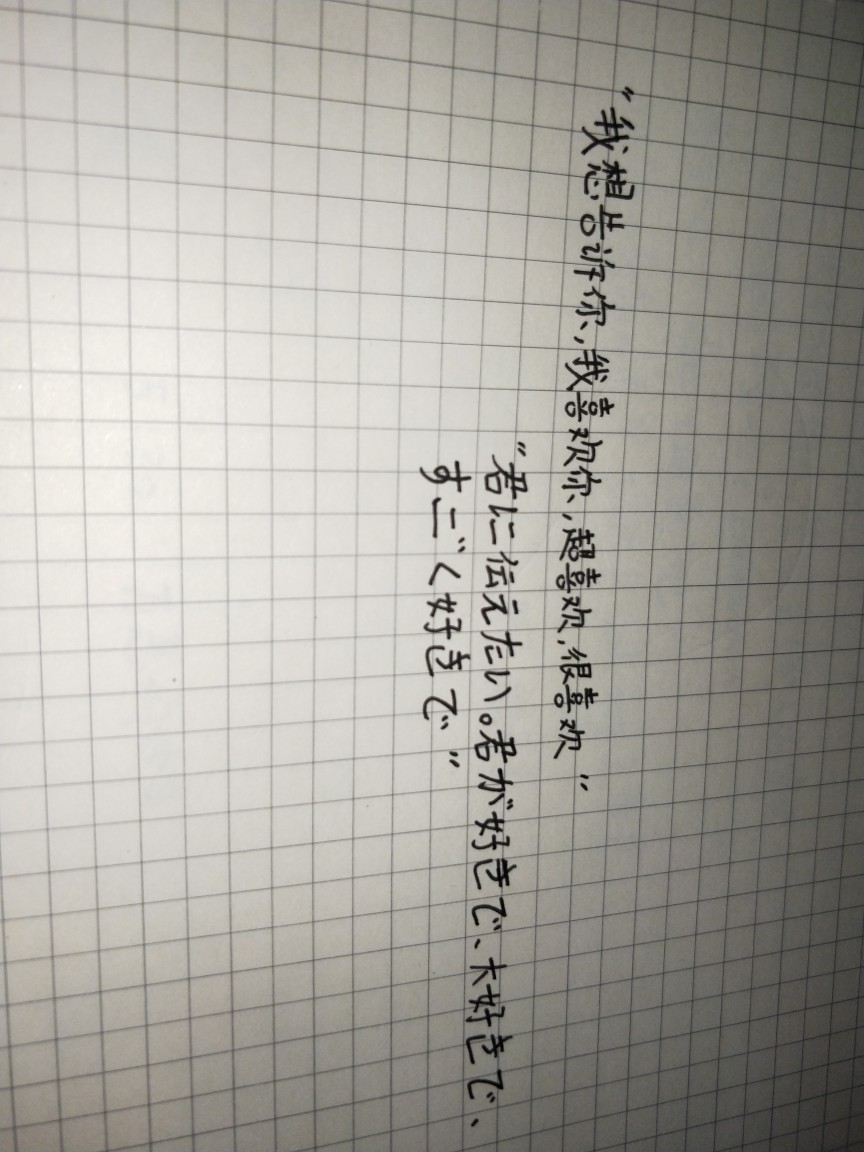 "我想告诉你,我喜欢你,超喜欢,很喜欢"
"君に伝えたい。君が好きで、大好きで、
すごく好きで"